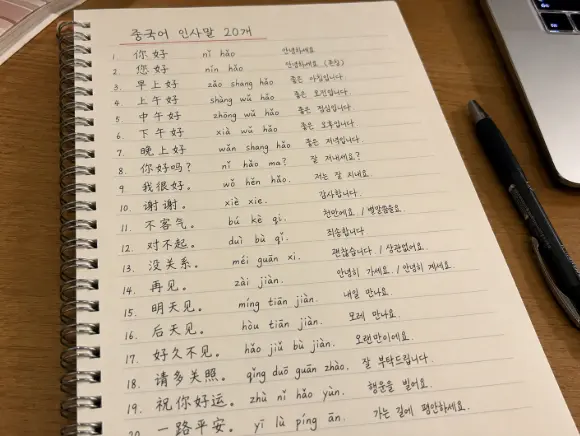 중국어 인사말 20개
1. 你好 nǐ hǎo 안녕하세요
2. 您好 nín hǎo 안녕하세요 (존칭)
3. 早上好 zǎo shang hǎo 좋은 아침입니다.
4. 上午好 shàng wǔ hǎo 좋은 오전입니다.
5. 中午好 zhōng wǔ hǎo 좋은 점심입니다.
6. 下午好 xià wǔ hǎo 좋은 오후입니다
7. 晚上好 wǎn shang hǎo 좋은 저녁입니다
8. 你好吗? nǐ hǎo ma? 잘 지내세요?
9. 我很好。 wǒ hěn hǎo. 저는 잘 지내요
10. 谢谢。 xiè xie. 감사합니다.
11. 不客气。 bú kè qi. 천만에요. / 별말씀을요.
12. 对不起。 duì bù qǐ. 죄송합니다
13. 没关系。 méi guān xi. 괜찮습니다. / 상관없어요.
14. 再见。 zài jiàn. 안녕히 가세요. / 안녕히 계세요.
15. 明天见。 míng tiān jiàn. 내일 만나요.
16. 后天见。 hòu tiān jiàn. 모레 만나요.
17. 好久不见。 hǎo jiǔ bù jiàn. 오랜만이에요.
18. 请多关照。 qǐng duō guān zhào. 잘 부탁드립니다
19. 祝你好运。 zhù nǐ hǎo yùn. 행운을 빌어요.
20. 一路平安。 yī lù píng ān. 가는 길에 평안하세요.